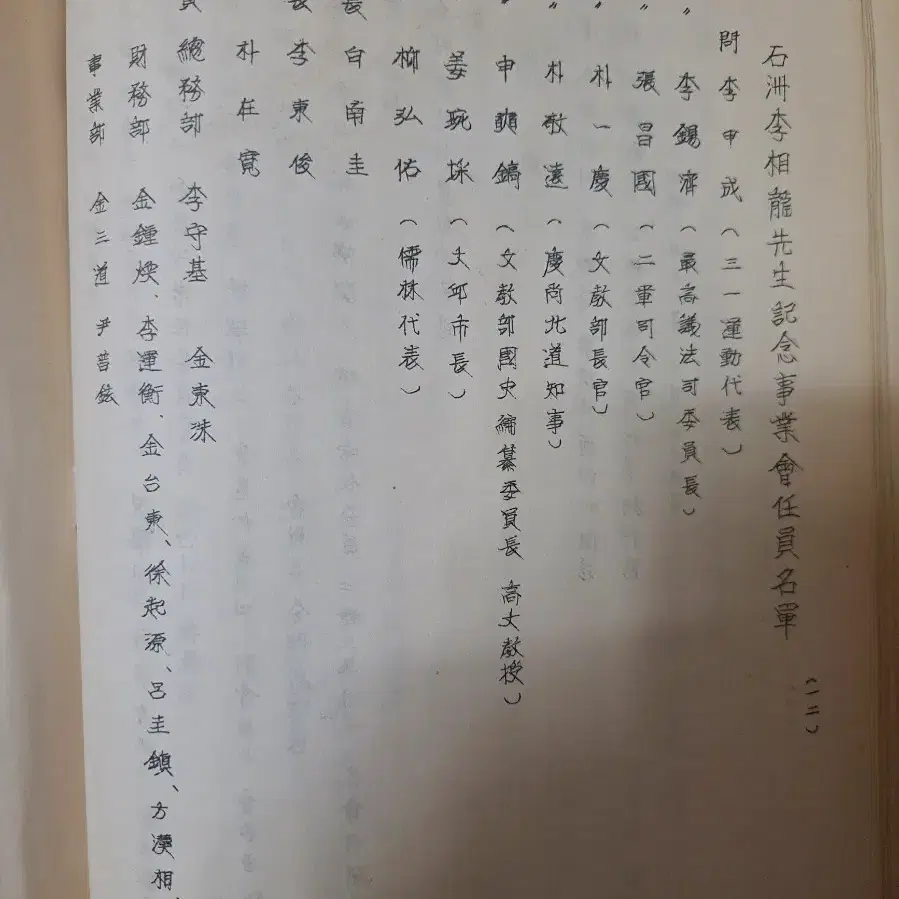 石洲李相龍先生記念事業會任員名單
(一二)
問 李甲成 (三一運動代表)
〃 李錫濟 (最高議法司委員長)
〃 張昌國 (二軍司令官)
〃 朴一慶 (文敎部長官)
〃 朴敬遠 (慶尚北道知事)
〃 申奭鎬 (文敎部國史編纂委員長 高大敎授)
姜琬埰 (大邱市長)
柳弘佑 (儒林代表)
長 白南圭
長 李東俊
朴在寬
員 總務部 李守基 金東洙
財務部 金鍾煥、李運衡、金台東、徐起源、呂圭鎮、方漢相、
事業部 金三道 尹普鉉